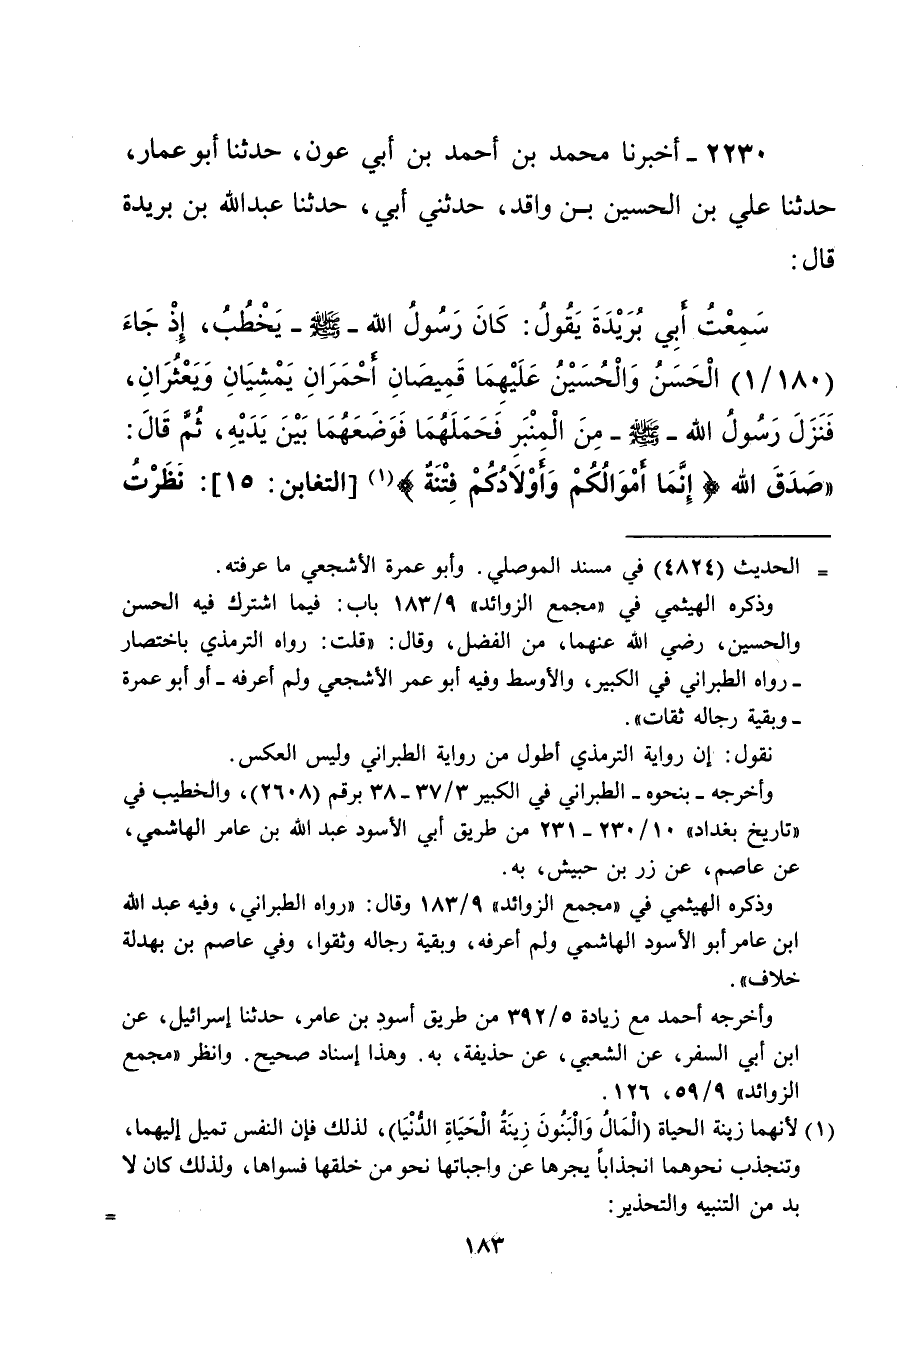 ٢٢٣٠ ـ أخبرنا محمد بن أحمد بن أبي عون، حدثنا أبو عمار،
حدثنا علي بن الحسين بـن واقد، حدثني أبي، حدثنا عبدالله بن بريدة
قال:
سَمِعْتُ أَبِي بُرَيْدَةَ يَقُولُ: كَانَ رَسُولُ الله ـ ﷺ ـ يَخْطُبُ، إِذْ جَاءَ
(١/١٨٠) الْحَسَنُ وَالْحُسَيْنُ عَلَيْهِمَا قَمِيصَانِ أَحْمَرَانِ يَمْشِيَانِ وَيَعْثُرَانِ،
فَنَزَلَ رَسُولُ الله ـ ﷺ ـ مِنَ الْمِنْبَرِ فَحَمَلَهُمَا فَوَضَعَهُمَا بَيْنَ يَدَيْهِ، ثُمَّ قَالَ:
«صَدَقَ الله ﴿ إِنَّمَا أَمْوَالُكُمْ وَأَوْلَادُكُمْ فِتْنَةٌ ﴾(١) [التغابن: ١٥]: نَظَرْتُ
= الحديث (٤٨٢٤) في مسند الموصلي. وأبو عمرة الأشجعي ما عرفته.
وذكره الهيثمي في «مجمع الزوائد» ١٨٣/٩ باب: فيما اشترك فيه الحسن
والحسين، رضي الله عنهما، من الفضل، وقال: «قلت: رواه الترمذي باختصار
ـ رواه الطبراني في الكبير، والأوسط وفيه أبو عمر الأشجعي ولم أعرفه ـ أو أبو عمرة
ـ وبقية رجاله ثقات».
نقول: إن رواية الترمذي أطول من رواية الطبراني وليس العكس.
وأخرجه ـ بنحوه ـ الطبراني في الكبير ٣٧/٣ ـ ٣٨ برقم (٢٦٠٨)، والخطيب في
«تاريخ بغداد» ٢٣٠/١٠ ـ ٢٣١ من طريق أبي الأسود عبد الله بن عامر الهاشمي،
عن عاصم، عن زر بن حبيش، به.
وذكره الهيثمي في «مجمع الزوائد» ١٨٣/٩ وقال: «رواه الطبراني، وفيه عبد الله
ابن عامر أبو الأسود الهاشمي ولم أعرفه، وبقية رجاله وثقوا، وفي عاصم بن بهدلة
خلاف».
وأخرجه أحمد مع زيادة ٣٩٢/٥ من طريق أسود بن عامر، حدثنا إسرائيل، عن
ابن أبي السفر، عن الشعبي، عن حذيفة، به. وهذا إسناد صحيح. وانظر «مجمع
الزوائد» ٥٩/٩، ١٢٦.
(١) لأنهما زينة الحياة (الْمَالُ وَالْبَنُونَ زِينَةُ الْحَيَاةِ الدُّنْيَا)، لذلك فإن النفس تميل إليهما،
وتنجذب نحوهما انجذاباً يجرها عن واجباتها نحو من خلقها فسواها، ولذلك كان لا
بد من التنبيه والتحذير:
=
١٨٣